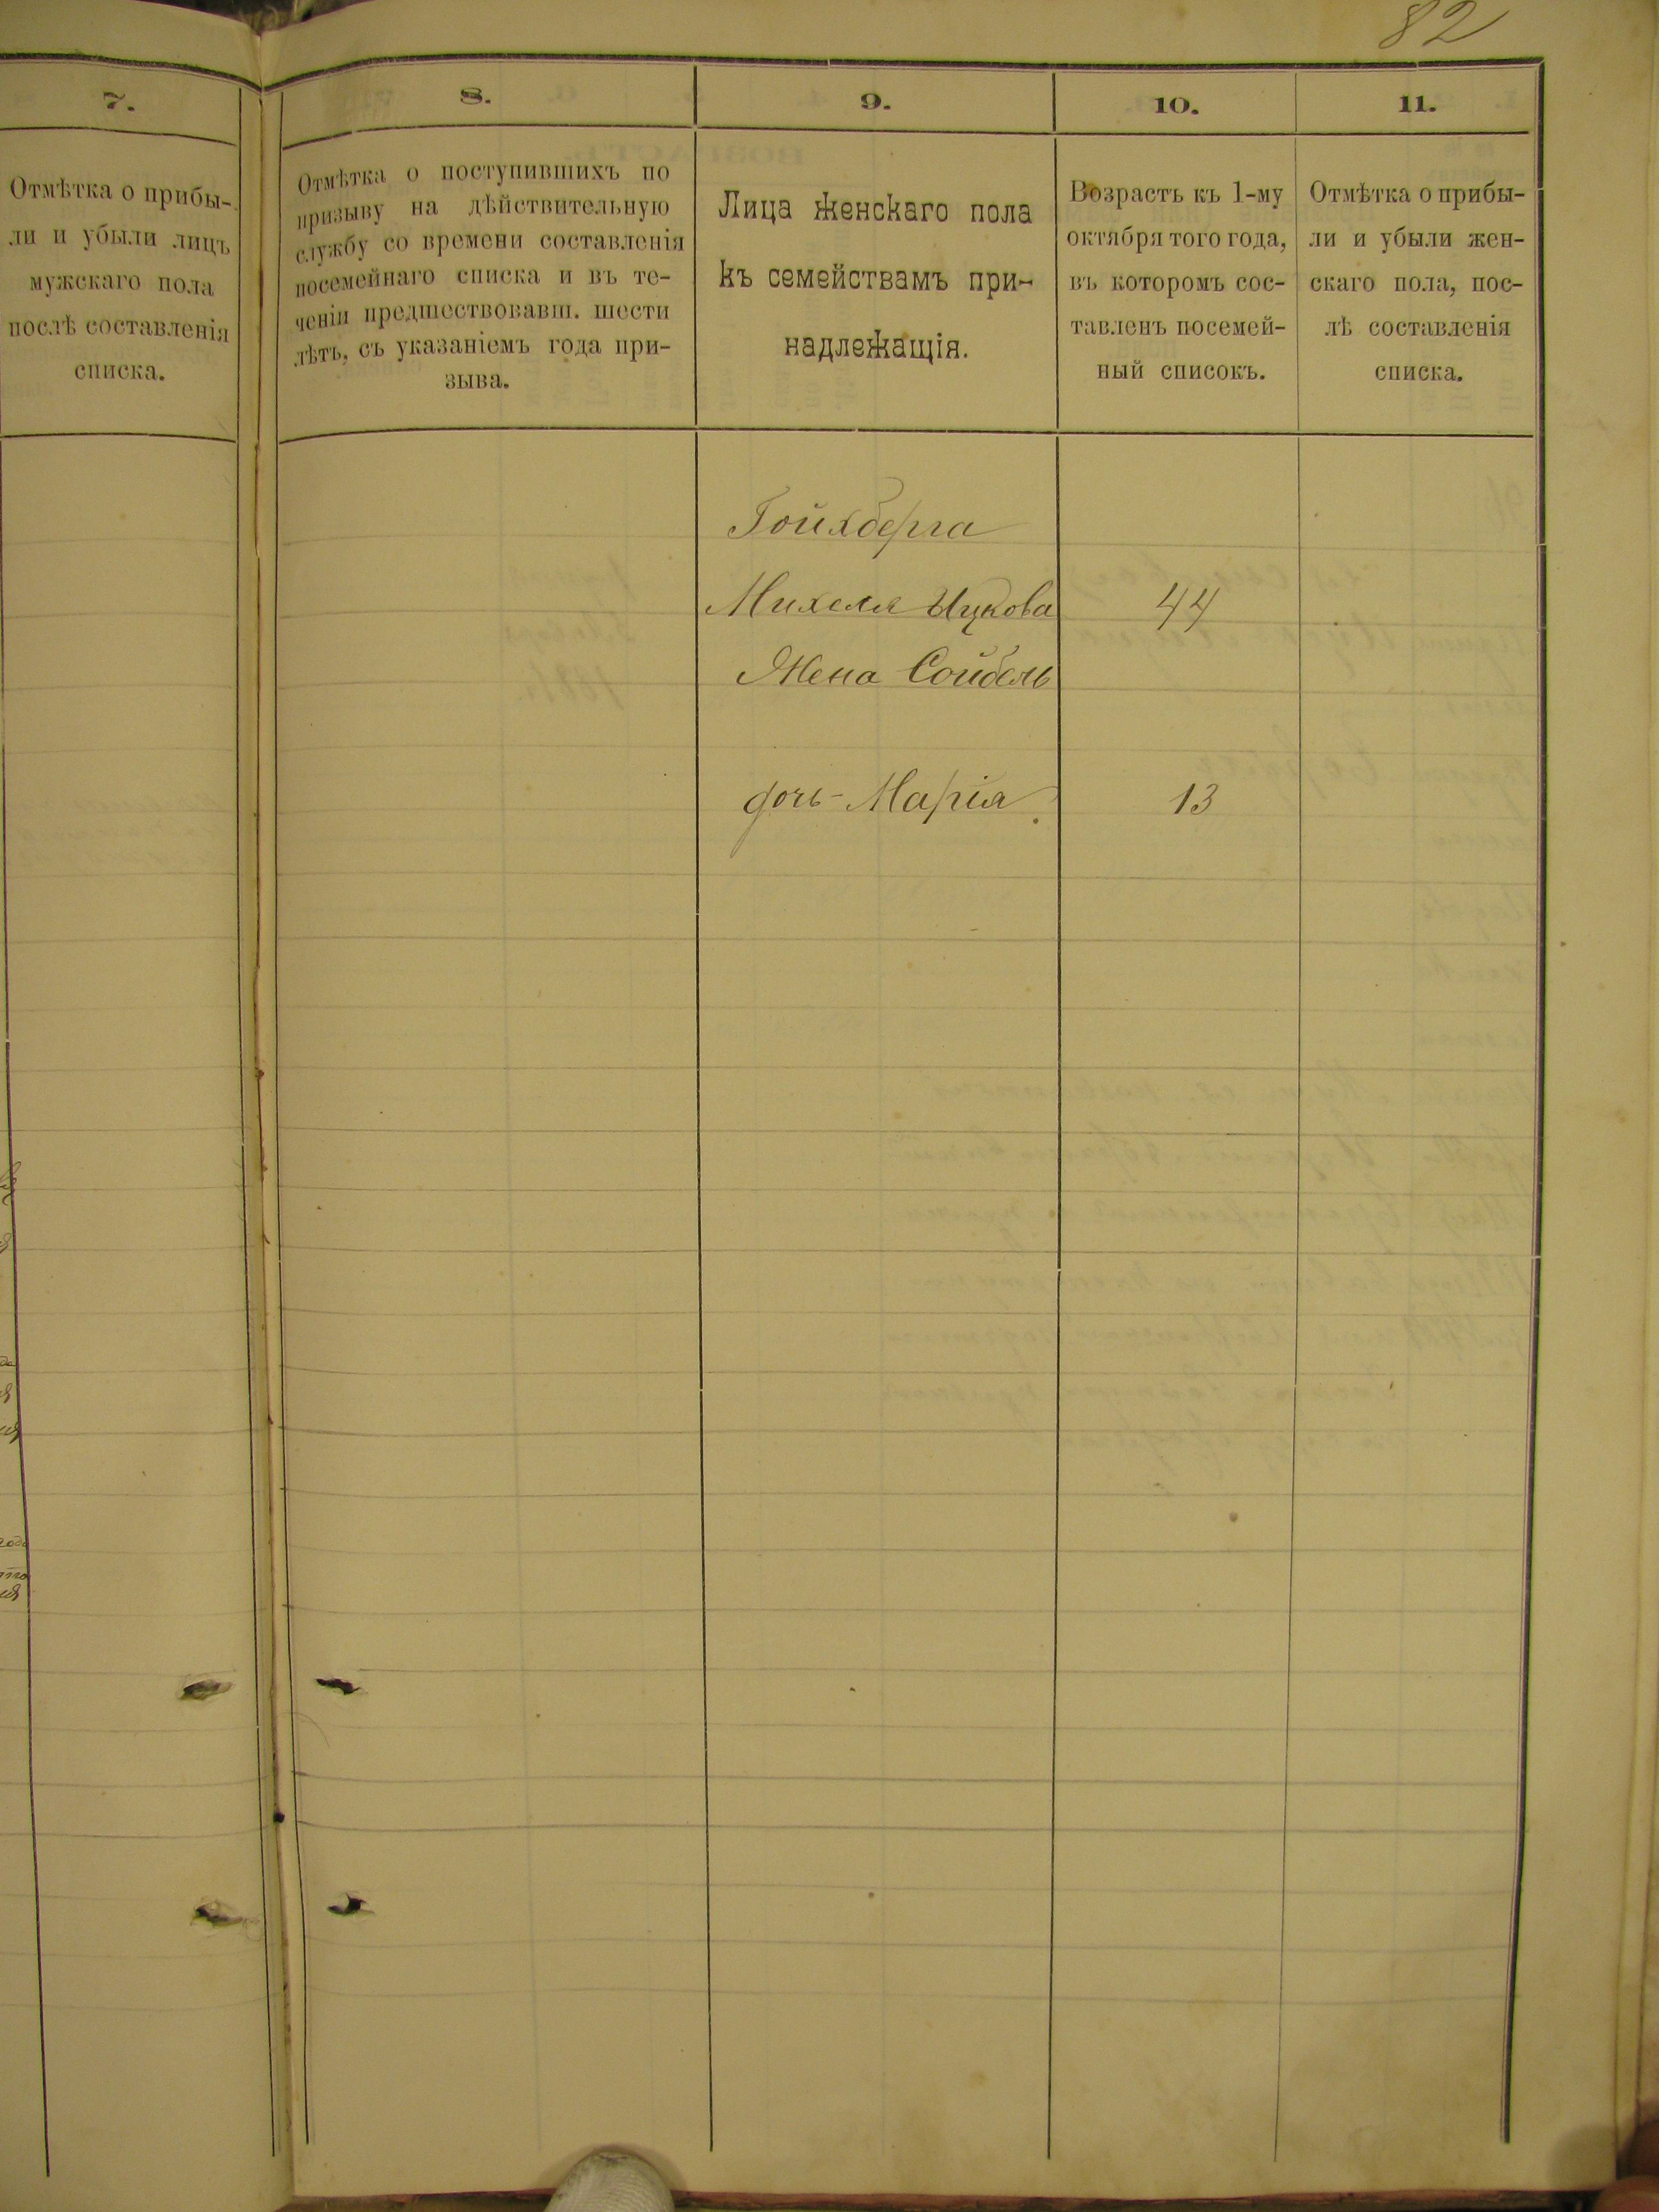 82
7.
Отмѣтка о прибы-
ли и убыли лицъ
мужскаго пола
послѣ составленія
списка.
8.
Отмѣтка о поступившихъ по
призыву на дѣйствительную
службу со времени составленія
посемейнаго списка и въ те-
ченіи предшествовавш. шести
лѣтъ, съ указаніемъ года при-
зыва.
9.
Лица женскаго пола
къ семействамъ при-
надлежащія.
10.
Возрастъ къ 1-му
октября того года,
въ которомъ сос-
тавленъ посемей-
ный списокъ.
11.
Отмѣтка о прибы-
ли и убыли жен-
скаго пола, пос-
лѣ составленія
списка.
Гойхберга
Михеля Ицкова 44
Жена Сойбель
дочь - Марія 13